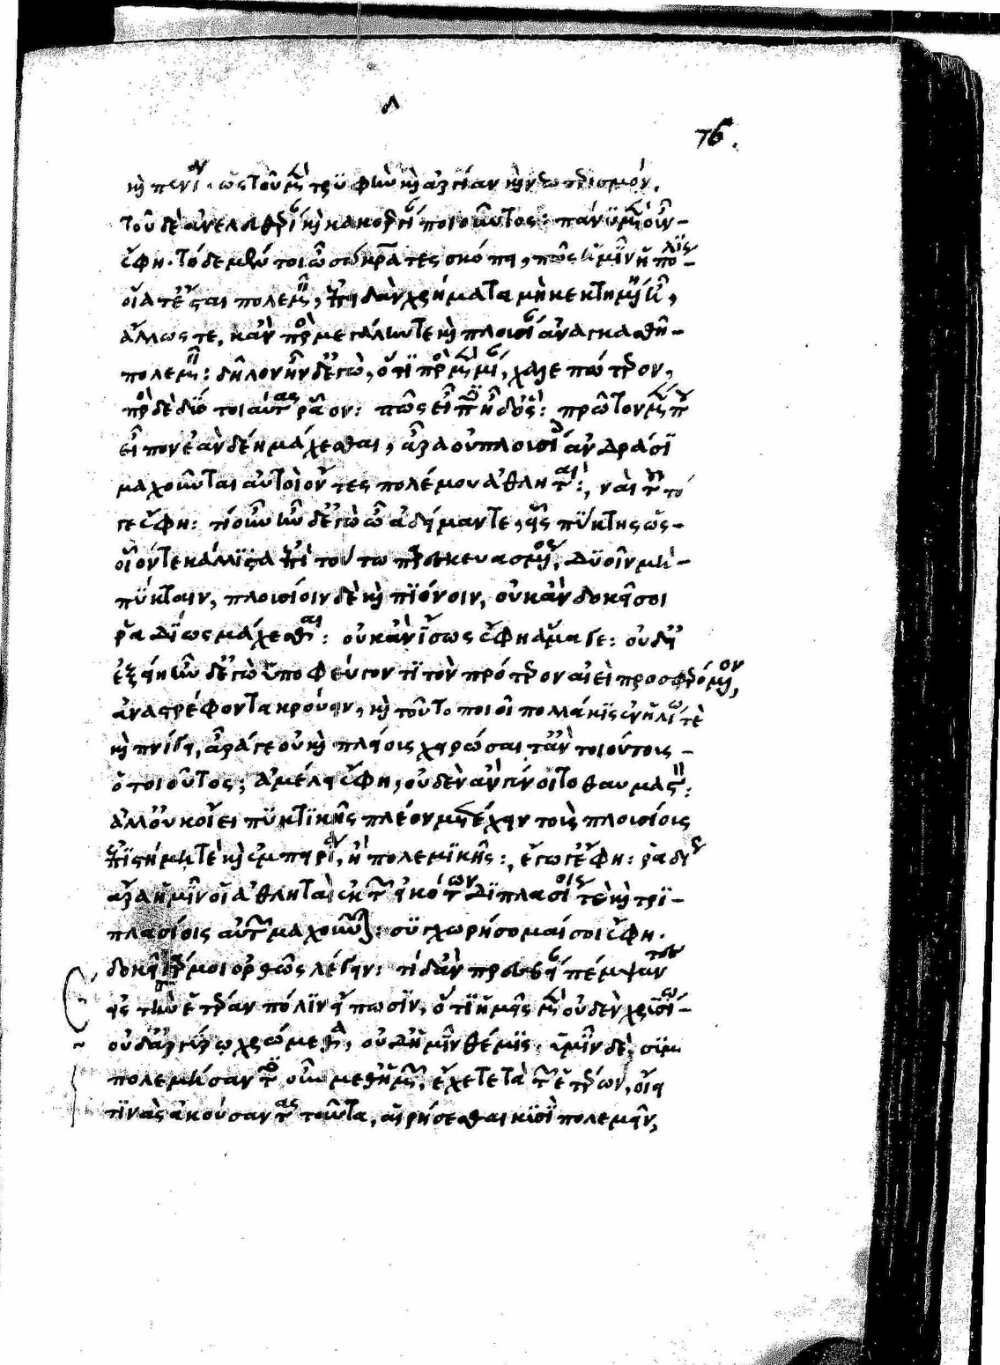 λ
76.
καὶ πενίαν· ὡς τοῦ μὲν τρυφὴν καὶ ἀργίαν καὶ νεωτερισμόν,
τοῦ δὲ ἀνελευθερίαν καὶ κακοεργίαν ποιοῦντος: πάνυ μὲν οὖν
ἔφη· τόδε μέντοι ὦ σώκρατες σκόπει, πῶς ἡμῖν ἡ πόλις
οἵα τ' ἔσται πολεμεῖν, ἐπειδὰν χρήματα μὴ κεκτημένη ᾖ,
ἄλλως τε, κἂν πρὸς μεγάλην τε καὶ πλουσίαν ἀναγκασθῇ
πολεμεῖν: δῆλον ἦν δ' ἐγὼ, ὅτι πρὸς μὲν μίαν, χαλεπώτερον,
πρὸς δὲ δύο τοιαύτας ῥᾶον: πῶς εἶπες ἦ δ' ὅς: πρῶτον μέν που
εἶπον ἐὰν δέῃ μάχεσθαι, ἆρα οὐ πλουσίοις ἀνδράσι
μαχοῦνται αὐτοὶ ὄντες πολέμου ἀθληταί:, ναὶ τοῦτό
γε ἔφη: τί οὖν ἦν δ' ἐγὼ ὦ ἀδείμαντε, εἷς πύκτης ὡς
οἷόν τε κάλλιστα ἐπὶ τοῦτο παρεσκευασμένος, δυοῖν μὴ
πύκταιν, πλουσίοιν δὲ καὶ πιόνοιν, οὐκ ἂν δοκεῖ σοι
ῥαδίως μάχεσθαι: οὐκ ἂν ἴσως ἔφη ἅμα γε: οὐδ' εἰ
ἐξείη ἦν δ' ἐγὼ ὑποφεύγοντι τὸν πρότερον ἀεὶ προσφερόμενον,
ἀναστρέφοντα κρούειν, καὶ τοῦτο ποιοῖ πολλάκις ἐν ἡλίῳ τὲ
καὶ πνίγει, ἆρά γε οὐ καὶ πλείους χειρώσαιτ' ἂν τοιούτους
ὁ τοιοῦτος; ἀμέλει ἔφη, οὐδὲν ἂν γένοιτο θαυμαστόν:
ἀλλ' οὐκ οἴει πυκτικῆς πλέον μετέχειν τοὺς πλουσίους
ἐπιστήμῃ τε καὶ ἐμπειρίᾳ, ἢ πολεμικῆς:, ἔγωγ' ἔφη: ῥαδίως
ἄρα ἡμῖν οἱ ἀθληταὶ ἐκ τῶν εἰκότων διπλασίοις τε καὶ τρι-
πλασίοις αὐτῶν μαχοῦνται: συγχωρήσομαί σοι ἔφη.
δοκεῖς γάρ μοι ὀρθῶς λέγειν: τί δ' ἂν πρεσβείαν πέμψαντες
εἰς τὴν ἑτέραν πόλιν εἴπωσιν, ὅτι ἡμεῖς μὲν οὐδὲν χρυσίῳ
οὐδ' ἀργυρίῳ χρώμεθα, οὐδ' ἡμῖν θέμις, ὑμῖν δὲ, συμ
πολεμήσαντες οὖν μεθ' ἡμῶν, ἔχετε τὰ τῶν ἑτέρων, οἴει
τινὰς ἀκούσαντας ταῦτα, αἱρήσεσθαι κυσὶ πολεμεῖν,